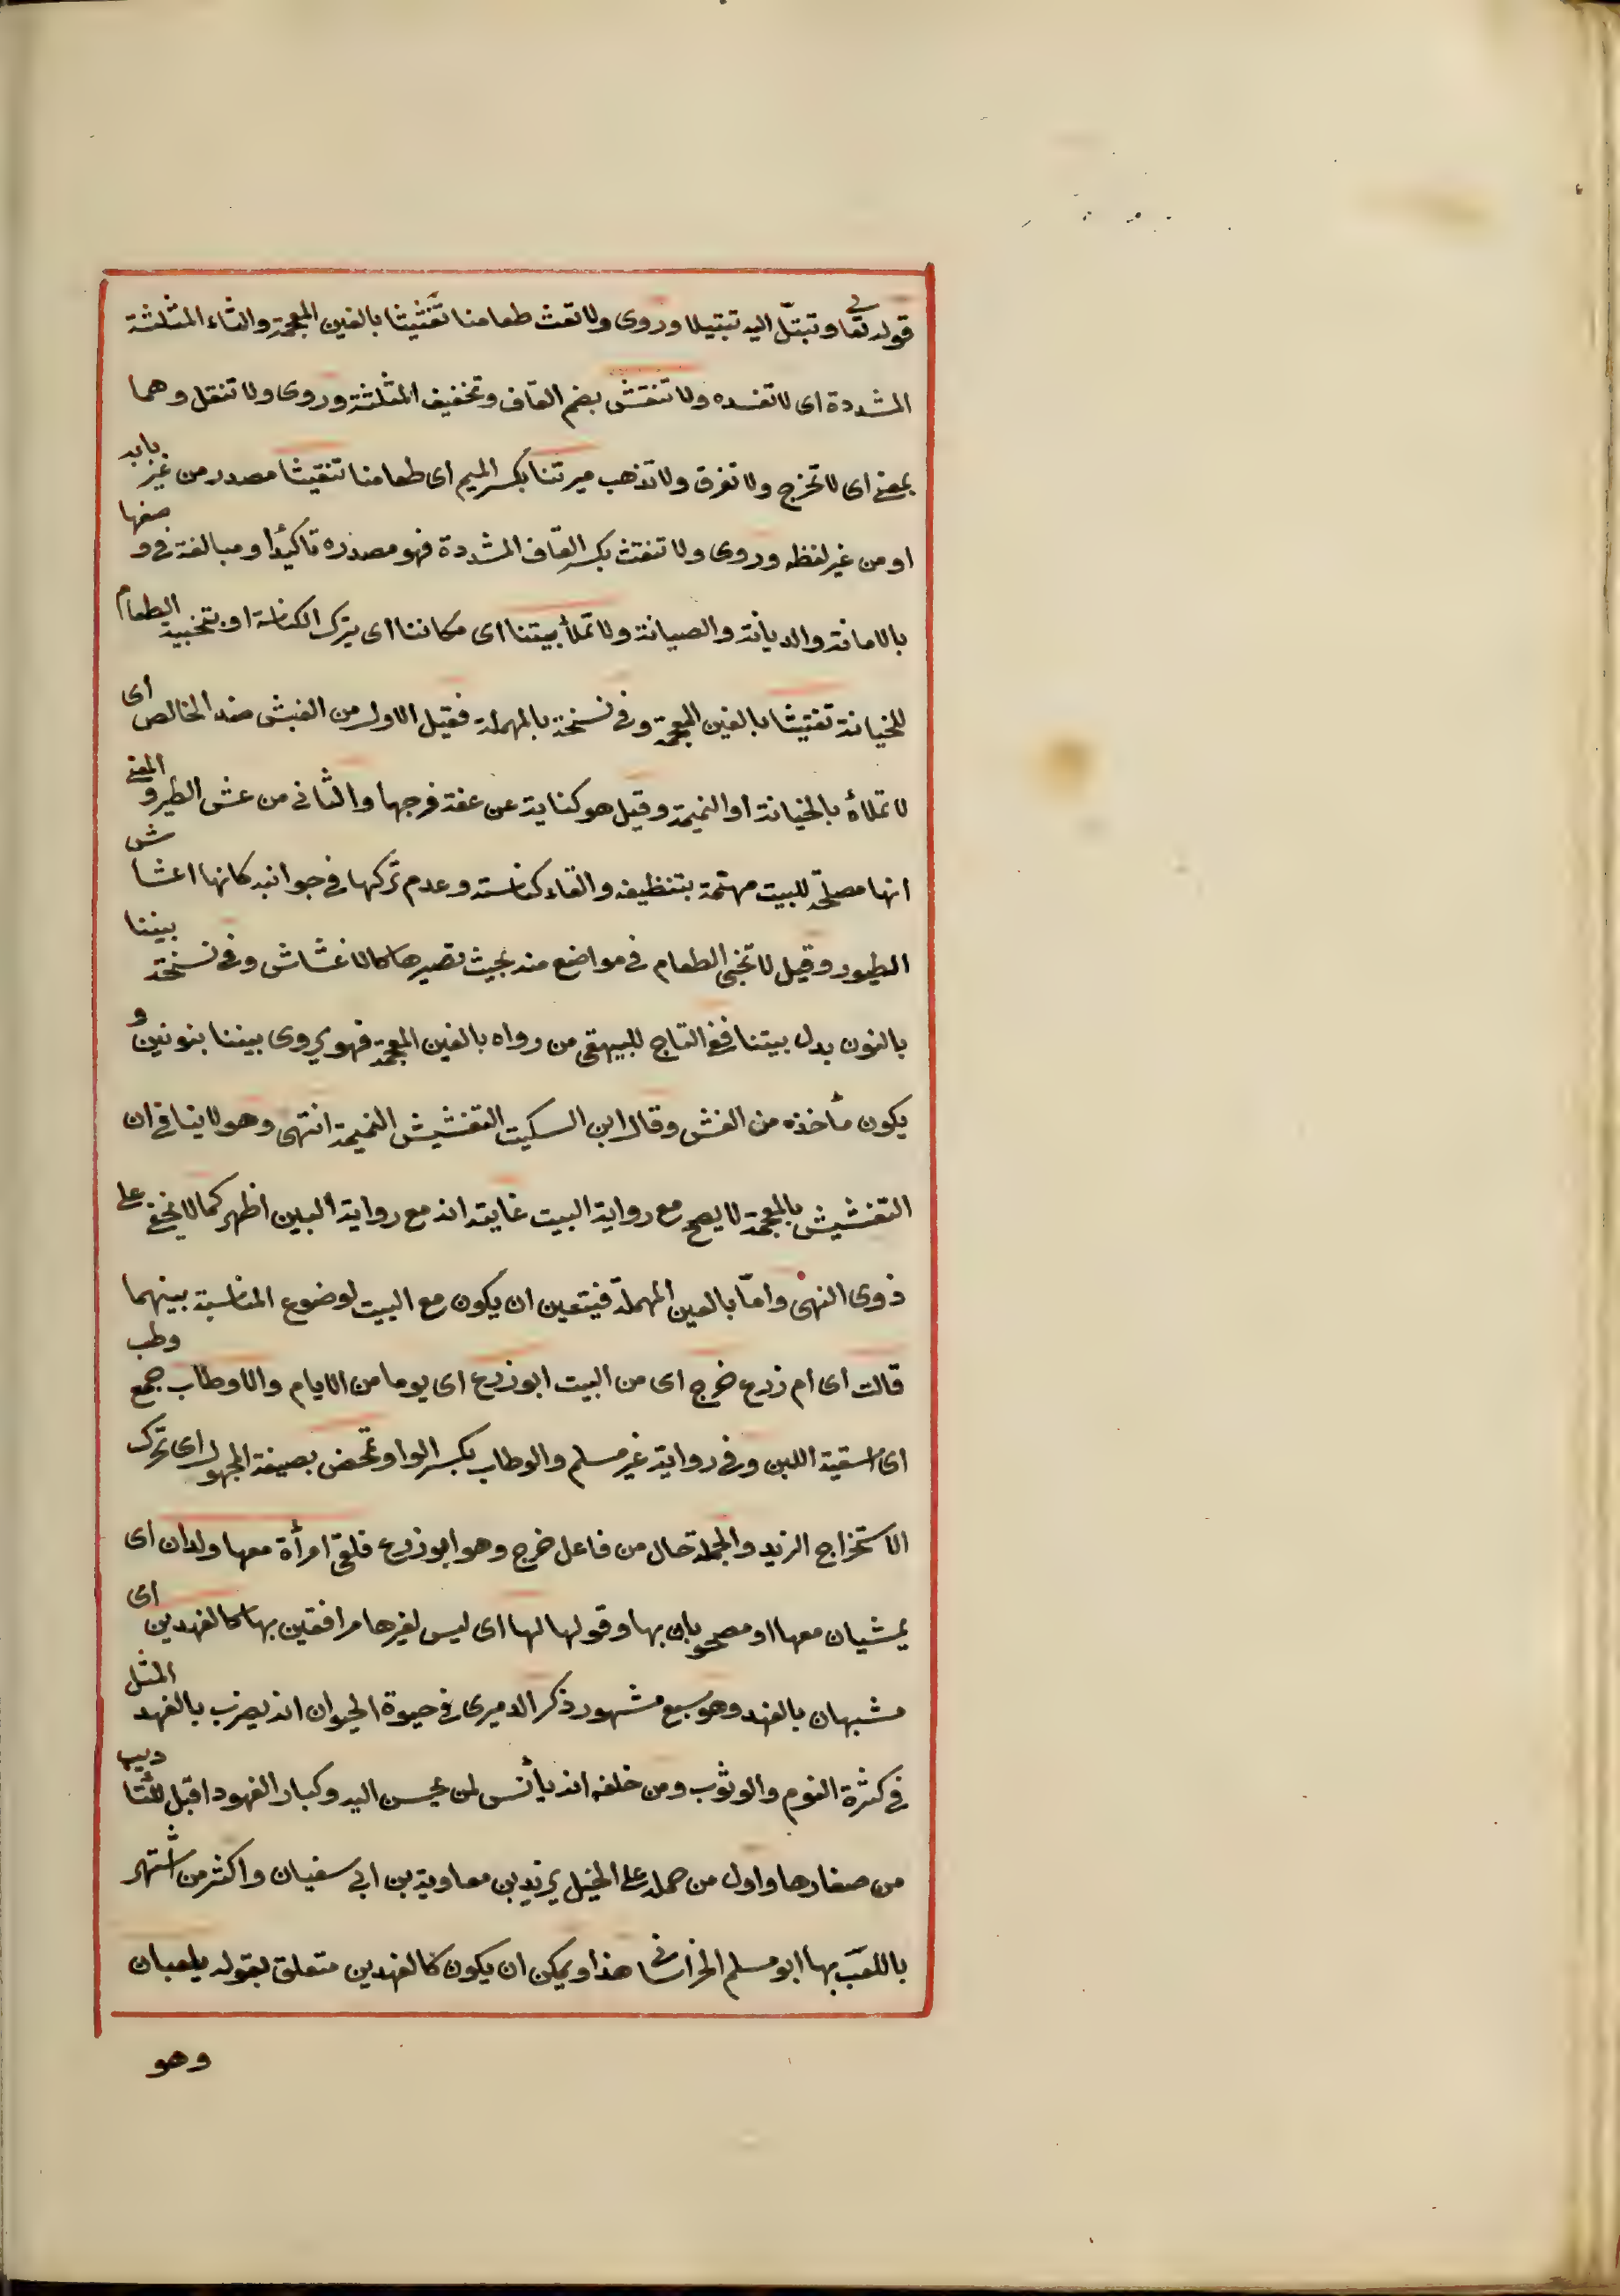 قوله تعالى وتبتل اليه تبتيلا وروى ولا تغث طعامنا تغثيثا بالغين المعجمة والثاء المثلثة
المشددة اى لا تفسده ولا تنقث بضم القاف وتخفيف المثلثة وروى ولا تنقل وهما
بمعنى اى لا تخرج ولا تفرق ولا تذهب ميرتنا بكسر الميم اى طعامنا تنقيثا مصدر من غير بابه
او من غير لفظه وروى ولا تنقث بكسر القاف المشددة فهو مصدره تاكيدا ومبالغة فى وصفها
بالامانة والديانة والصيانة ولا تملأ بيتنا اى مكاننا اى بترك الكناسة او بتخبية الطعام
للخيانة تغشيشا بالغين المعجمة وفى نسخة بالمهملة فقيل الاول من الغش ضد الخالص اى
لا تملأه بالخيانة او النميمة وقيل هو كناية عن عفة فرجها والثانى من عش الطير والمعنى
انها مصلحة للبيت مهتمة بتنظيفه والقاء كناسته وعدم تركها فى جوانبه كانها اعشاش
الطيور وقيل لا تخبئ الطعام فى مواضع منه بحيث تصيرها كالاعشاش وفى نسخة بيننا
بالنون بدل بيتنا ففى التاج للبيهقى من رواه بالغين المعجمة فهو يروى بيننا بنونين و
يكون مأخذه من الغش وقال ابن السكيت التغشيش النميمة انتهى وهو لا ينافى ان
التغشيش بالمعجمة لا يصح مع رواية البيت غايته انه مع رواية البين اظهر كما لا يخفى على
ذوى النهى واما بالعين المهملة فيتعين ان يكون مع البيت لوضوع المناسبة بينهما
قالت اى ام زرع خرج اى من البيت ابو زرع اى يوما من الايام والاوطاب جمع وطب
اى اسقية اللبن وفى رواية غير مسلم والوطاب بكسر الواو تمخض بصيغة المجهول اى تحرك
الاستخراج الزبد والجملة حال من فاعل خرج وهو ابو زرع فلقى امرأة معها ولدان اى
يمشيان معها او مصحوبان بها وقولها لها اى ليس لغيرها مرافقين بها كالفهدين اى
مشبهان بالفهد وهو سبع مشهور ذكر الدميرى فى حيوة الحيوان انه يضرب بالفهد المثل
فى كثرة النوم والوثوب ومن خلقه انه يأنس لمن يحسن اليه وكبار الفهود اقبل للتأديب
من صغارها واول من حمله على الخيل يزيد بن معاوية بن ابى سفيان واكثر من اشتهر
باللعب بها ابو مسلم الخراسانى هذا ويمكن ان يكون كالفهدين متعلق بقوله يلعبان
وهو